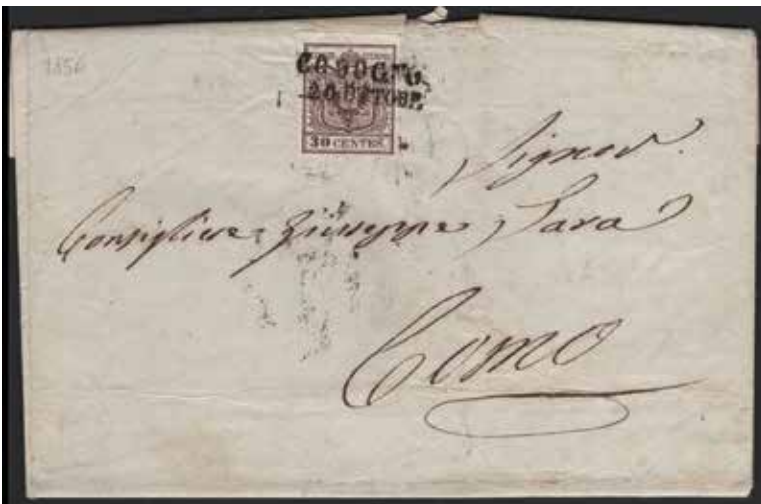 1856
20 OTTOBR.
30 CENTES.
Signor
Consigliere Giuseppe
Como